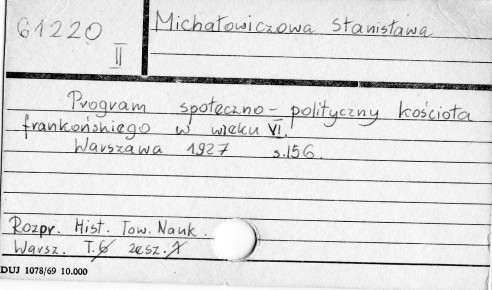 61220
II
Michałowiczowa Stanisława
Program społeczno-polityczny kościoła
frankońskiego w wieku VI.
Warszawa 1927 s.156.
Rozpr. Hist. Tow. Nauk.
Warsz. T.6 zesz.1
DUJ 1078/69 10.000